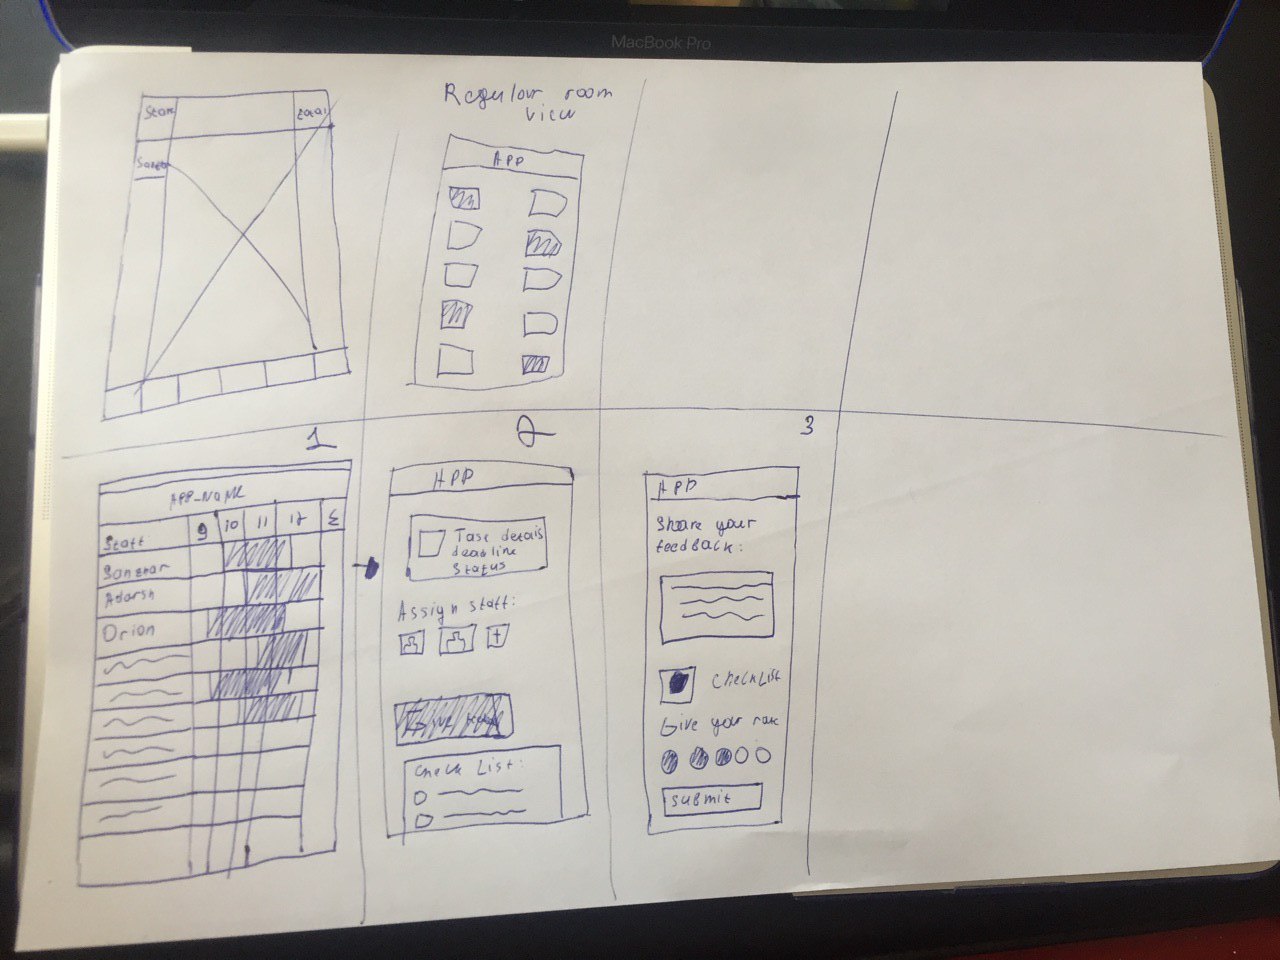 MacBook Pro
Staff
total
Regular room
view
APP
1
2
3
APP_NAME
Staff
9
10
11
12
Σ
Sanzhar
Adarsh
Orion
APP
Task details
deadline
status
Assign staff:
+
Check List:
APP
Share your
feedback:
checklist
Give your rate
submit